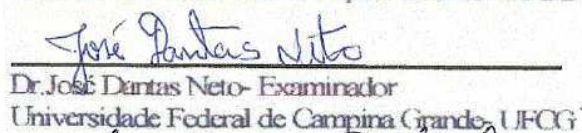 José Dantas Neto
Dr. José Dantas Neto- Examinador
Universidade Federal de Campina Grande- UFCG